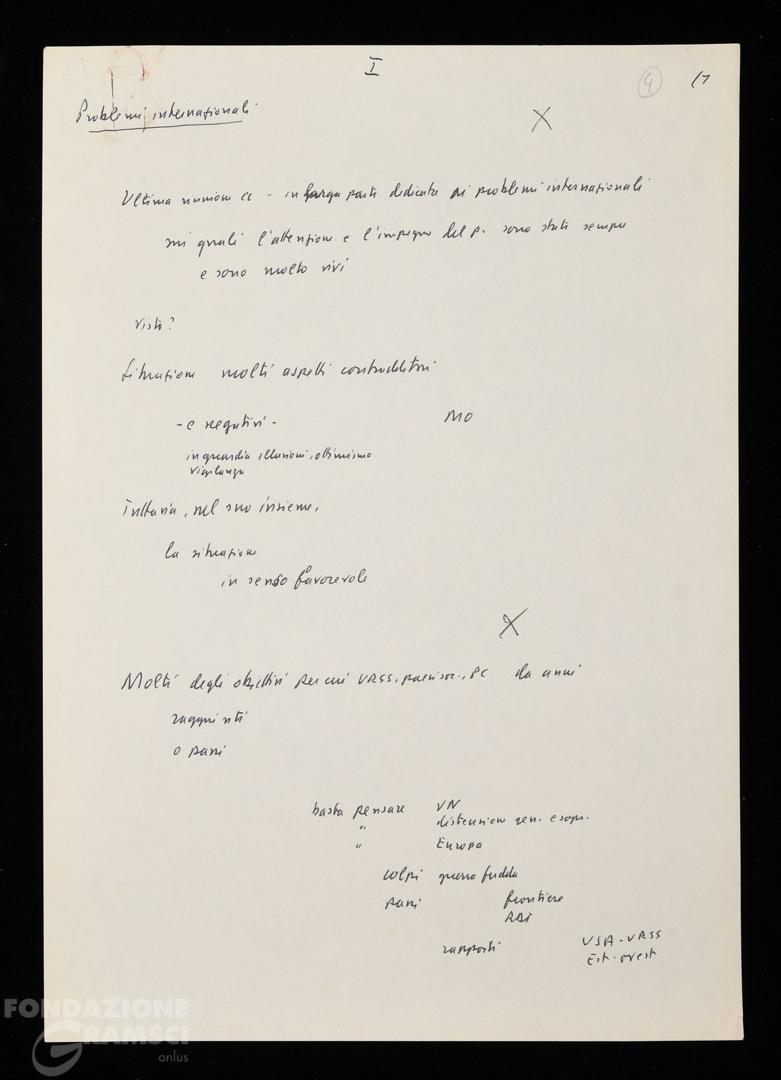 I
4
Problemi internazionali
X
Ultima riunione CC - in larga parte dedicata ai problemi internazionali
sui quali l'attenzione e l'impegno del p. sono stati sempre
e sono molto vivi
visti?
Situazione molti aspetti contraddittori
- e negativi - MO
in guardia illusioni, ottimismo
vigilanza
Tuttavia, nel suo insieme,
la situazione
in senso favorevole
X
Molti degli obiettivi per cui URSS, paesi soc., PC da anni
raggiunti
o passi
basta pensare VN
" distensione gen. e sopr.
" Europa
colpi guerra fredda
passi frontiere
RDT
rapporti USA-URSS
Est-ovest
FONDAZIONE
GRAMSCI
onlus